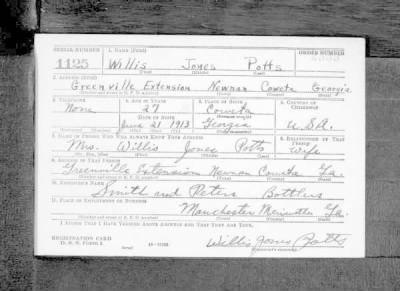 SERIAL NUMBER 1. NAME (Print) ORDER NUMBER
1125 Willis Jones Potts
(First) (Middle) (Last)
2. ADDRESS (Print)
Greenville Extension Newnan Coweta Georgia
3. TELEPHONE 4. AGE IN YEARS 5. PLACE OF BIRTH 6. COUNTRY OF CITIZENSHIP
None 27 Coweta
DATE OF BIRTH
June 21 1913 Georgia U.S.A.
7. NAME OF PERSON WHO WILL ALWAYS KNOW YOUR ADDRESS 8. RELATIONSHIP OF THAT PERSON
Mrs. Willis Jones Potts Wife
(Mr., Mrs., Miss) (First) (Middle) (Last)
9. ADDRESS OF THAT PERSON
Greenville Extension Newnan Coweta Ga.
10. EMPLOYER'S NAME
Smith and Peters Bottlers
11. PLACE OF EMPLOYMENT OR BUSINESS
Manchester Meriwether Ga.
I AFFIRM THAT I HAVE VERIFIED ABOVE ANSWERS AND THAT THEY ARE TRUE.
REGISTRATION CARD
D. S. S. Form 1 Willis Jones Potts